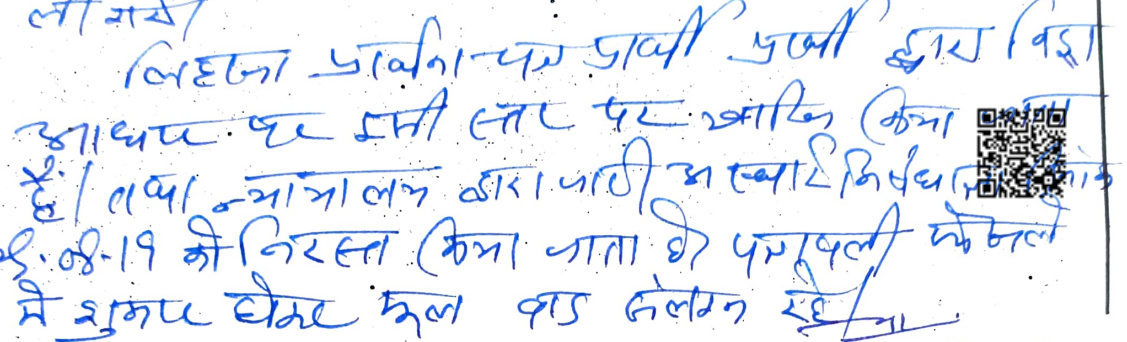 ली गयी
लिहाजा प्रार्थना-पत्र प्रार्थी द्वारा विड्रा
आधार पर इसी स्तर पर खारिज किया
है। तथा न्यायालय द्वारा जारी अस्थाई निषेधाज्ञा
08-19 को निरस्त किया जाता है। पत्रावली फैसल
में शुमार होकर मूल वाद संलग्न रहे।